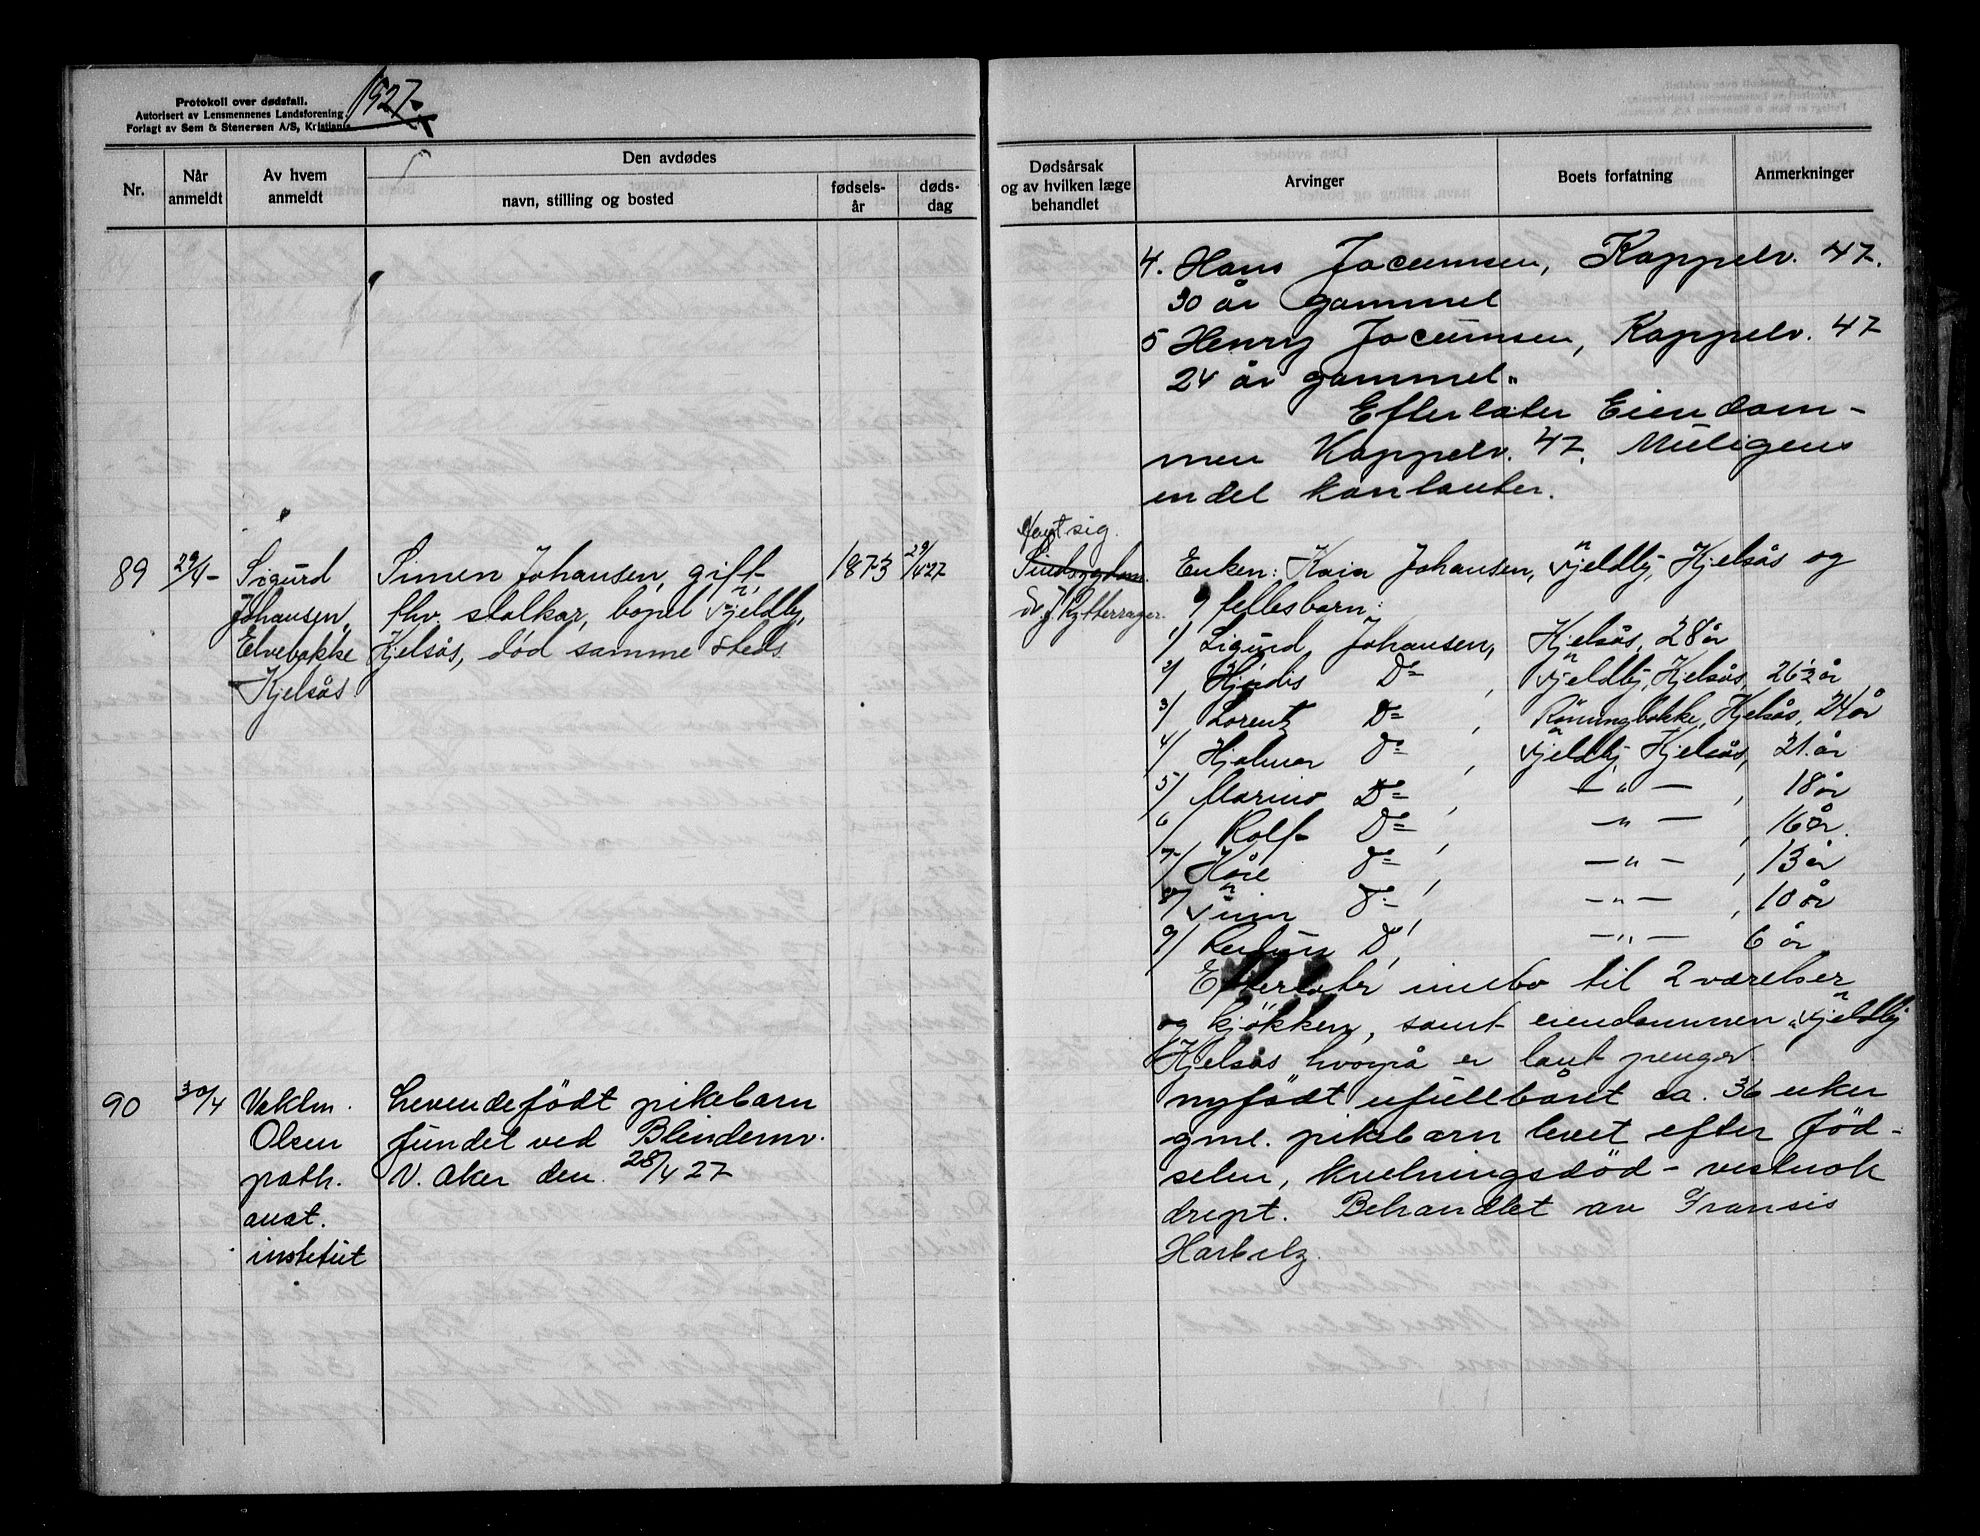 1927.
Protokoll over dødsfall.
Autorisert av Lensmennenes Landsforening.
Forlagt av Sem & Stenersen A/S, Kristiania
Nr.
Når anmeldt
Av hvem anmeldt
Den avdødes
navn, stilling og bosted
fødsels-år
døds-dag
Dødsårsak
og av hvilken læge
behandlet
Arvinger
Boets forfatning
Anmerkninger
4. Hans Jocumsen, Kappelv. 47.
30 år gammel
5 Henry Jocumsen, Kappelv. 47
24 år gammel.
Efterlater Eiendom-
men Kappelv. 47. Muligens
en del kontanter.
89 29/4- Sigurd Johansen, Elvebakke Kjelsås
Simen Johansen, gift
fhv. stalkar, bopel Fjeldby,
Kjelsås, død samme steds
1873 29/4 27
sig.
Enken: Kaia Johansen, Fjeldby, Kjelsås og
9 fellesbarn:
1/ Sigurd Johansen, Kjelsås, 28 år
2/ Hjördis Do, Fjeldby, Kjelsås, 26½ år
3/ Lorentz Do, Rönningbakke, Kjelsås, 24 år
4/ Hjalmar Do, Fjeldby, Kjelsås, 21 år
5/ Marino Do, -"-, 18 år
6 Rolf Do, -"-, 16 år.
7/ Kåre Do, -"-, 13 år
8/ Do, -"-, 10 år
9/ D, -"- 6 år
Efterlater innebo til 2 værelser
og kjøkken, samt eiendommen "Fjeldby
Kjelsås hvorpå er lånt penger.
90 30/4 Olsen
path.
anat.
institut
Levendefödt pikebarn
fundet ved Blindernv.
V. Aker den 28/4 27
nyfödt ufullbåret ca. 36 uker
gml. pikebarn levet efter föd-
selen, kvelningsdöd - vestnok
drept. Behandlet av Fransis
Harbitz.